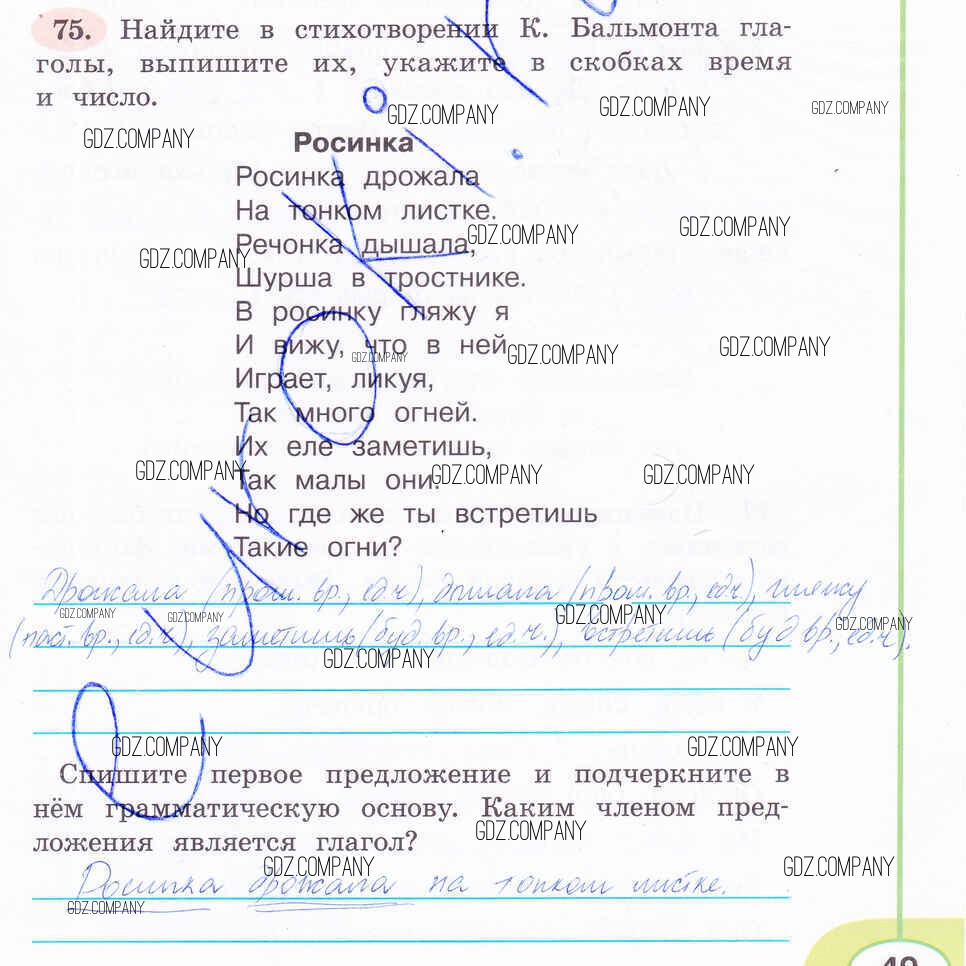 75. Найдите в стихотворении К. Бальмонта гла-
голы, выпишите их, укажите в скобках время
и число.
GDZ.COMPANY GDZ.COMPANY GDZ.COMPANY
GDZ.COMPANY
Росинка
Росинка дрожала
На тонком листке.
GDZ.COMPANY GDZ.COMPANY
Речонка дышала,
GDZ.COMPANY
Шурша в тростнике.
В росинку гляжу я
И вижу, что в ней
GDZ.COMPANY GDZ.COMPANY GDZ.COMPANY
Играет, ликуя,
Так много огней.
Их еле заметишь,
GDZ.COMPANY GDZ.COMPANY GDZ.COMPANY
Так малы они.
Но где же ты встретишь
Такие огни?
Дрожала (прош. вр., ед.ч), дышала (прош. вр., ед.ч), гляжу
GDZ.COMPANY GDZ.COMPANY GDZ.COMPANY GDZ.COMPANY
(наст. вр., ед.ч.), заметишь (буд. вр., ед.ч.), встретишь (буд. вр., ед.ч).
GDZ.COMPANY
GDZ.COMPANY GDZ.COMPANY
Спишите первое предложение и подчеркните в
нём грамматическую основу. Каким членом пред-
GDZ.COMPANY
ложения является глагол?
GDZ.COMPANY GDZ.COMPANY
Росинка дрожала на тонком листке.
GDZ.COMPANY
49